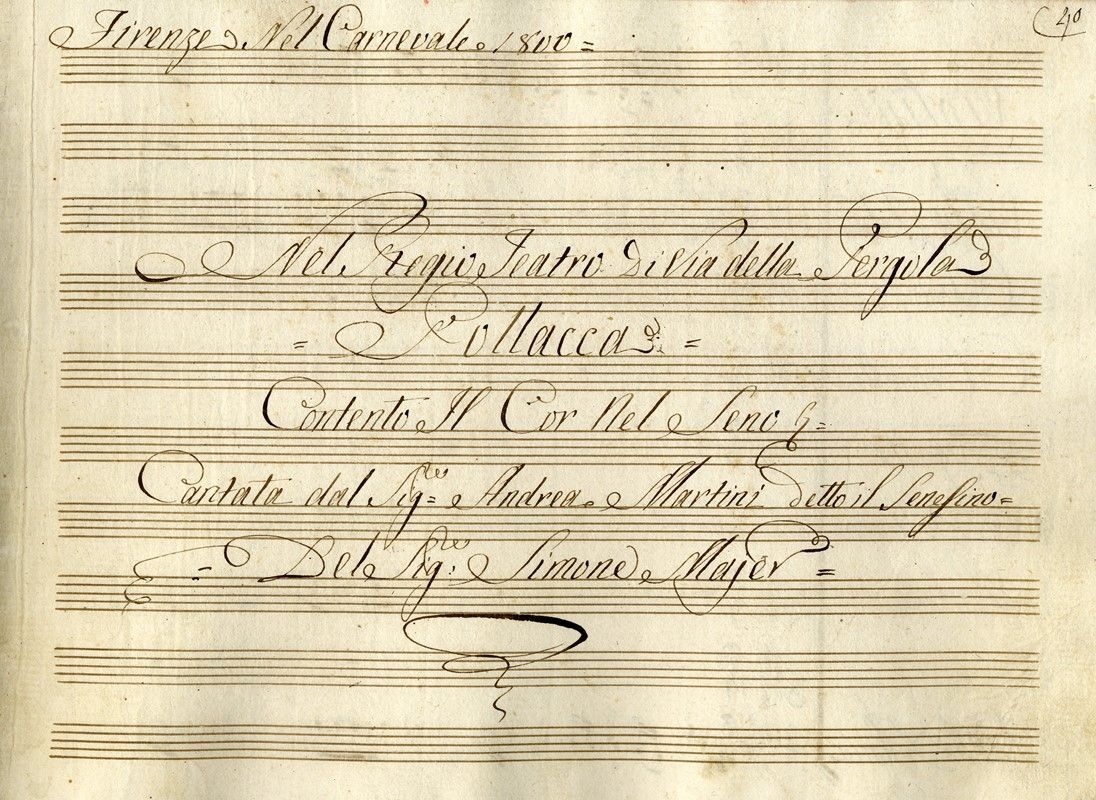 40
Firenze Nel Carnevale 1800 =
Nel Regio Teatro Di Via della Pergola
= Pollacca =
Contento Il Cor Nel Seno &=
Cantata dal Sig=re Andrea Martini Detto il Senesino=
= Del Sig:re Simone Majer =